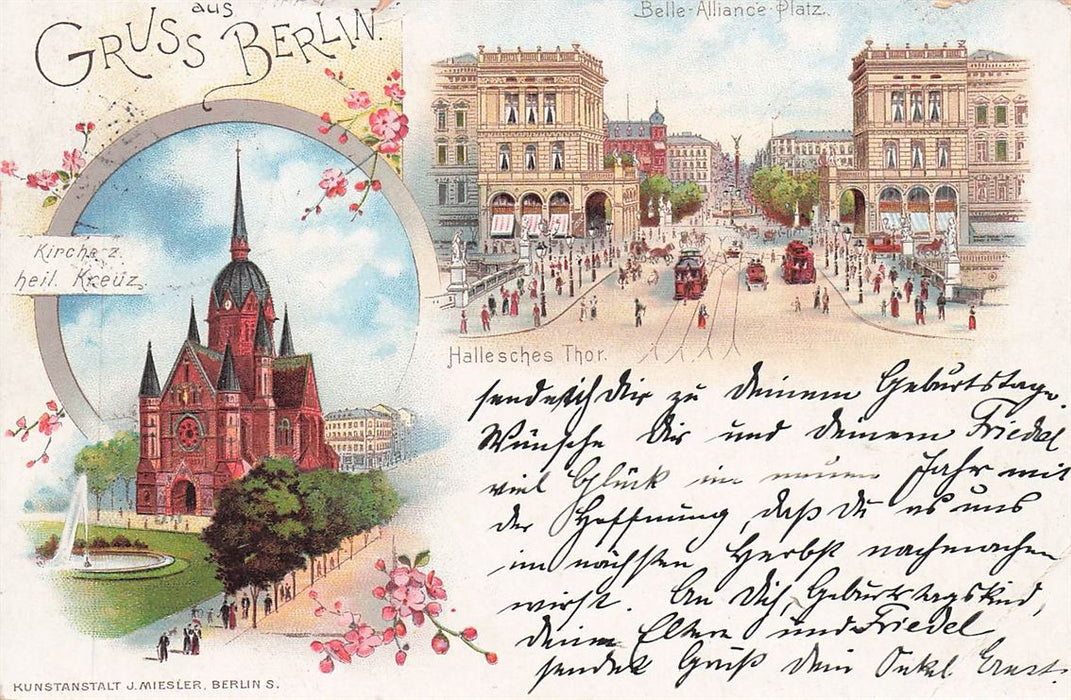 Gruss aus Berlin.
Belle-Alliance-Platz.
Kirche z.
heil. Kreuz.
Hallesches Thor.
sende ich Dir zu Deinem Geburtstage.
Wünsche Dir und deinem Friedel
viel Glück im neuen Jahr mit
der Hoffnung, daß Du es uns
im nächsten Herbst nachmachen
wirst. An Dich, Geburtstagskind,
deine Eltern und Friedel
sendet Gruß Dein Onkel Ernst.
KUNSTANSTALT J. MIESLER, BERLIN S.